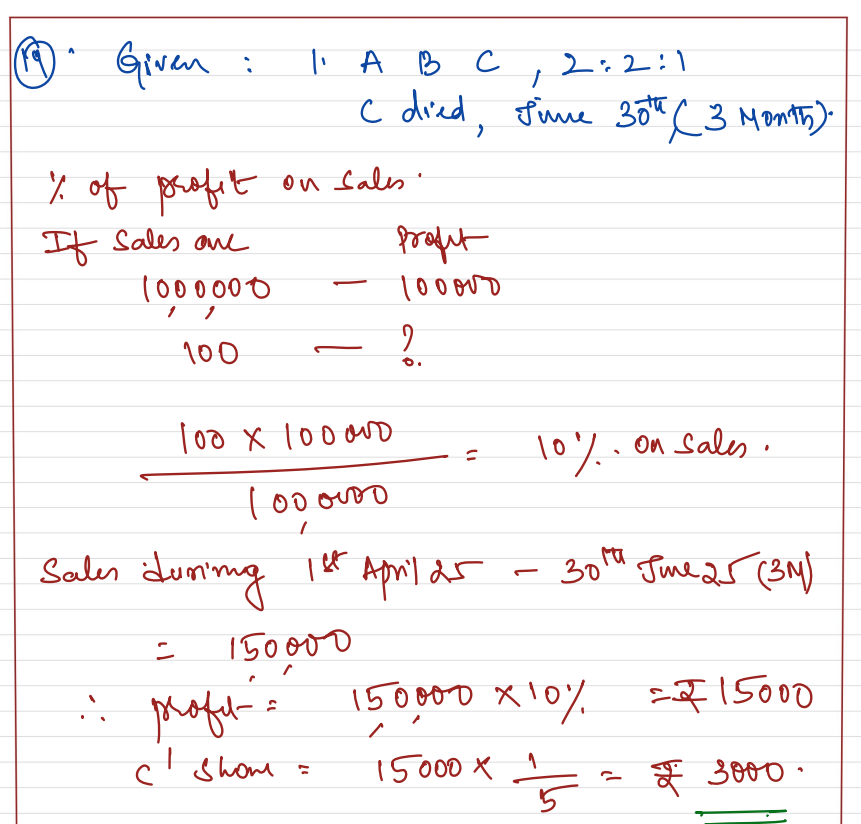 19. Given : 1. A B C , 2:2:1
C died, June 30th ( 3 Months).
% of profit on sales.
If Sales are Profit
1000000 — 100000
100 — ?
100 x 100000 / 1000000 = 10%. on sales.
Sales during 1st April 25 - 30th June 25 (3M)
= 150000
∴ profit = 150000 x 10% = ₹ 15000
C' share = 15000 x 1/5 = ₹ 3000.